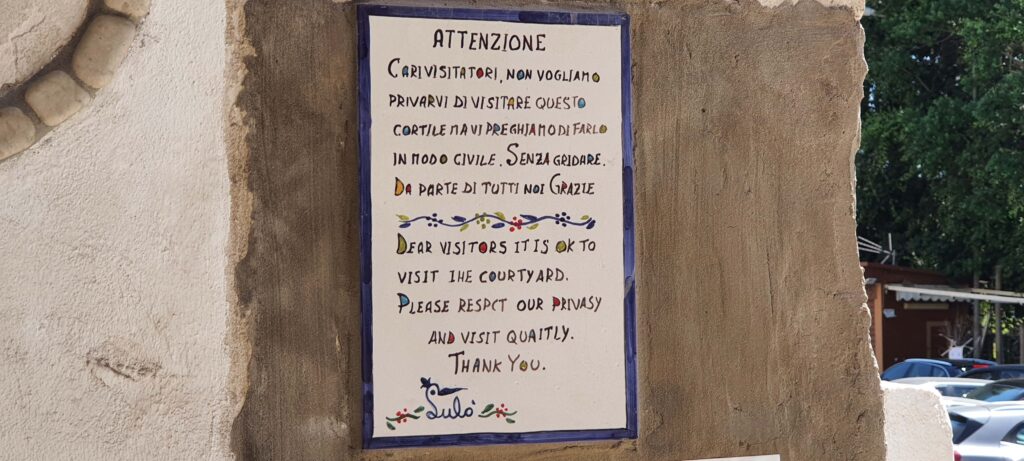 ATTENZIONE
CARI VISITATORI, NON VOGLIAMO
PRIVARVI DI VISITARE QUESTO
CORTILE MA VI PREGHIAMO DI FARLO
IN MODO CIVILE. SENZA GRIDARE.
DA PARTE DI TUTTI NOI GRAZIE
DEAR VISITORS IT IS OK TO
VISIT IHE COURTYARD.
PLEASE RESPCT OUR PRIVASY
AND VISIT QUAITLY.
THANK YOU.
Lulò